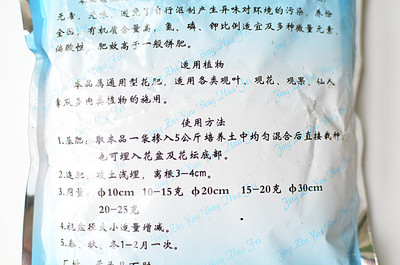 元素,无味,避免了自行沤制产生异味对环境的污染,养检
全面,有机质含量高,氮、磷、钾比例适宜及多种微量元素,
偏酸性,肥效高于一般饼肥。
适用植物
本品属通用型花肥,适用各类观叶、观花、观果、仙人
掌及多肉类植物的施用。
使用方法
1.基肥:取本品一袋掺入5公斤培养土中均匀混合后直接栽种,
也可埋入花盆及花坛底部。
2.追肥:破土浅埋,离根3-4cm。
3.用量:φ10cm 10-15克 φ20cm 15-20克 φ30cm
20-25克
4.视盆径大小适量增减。
5.春、秋、冬1-2月一次。
Jing Zhi You Bing Hua Fei